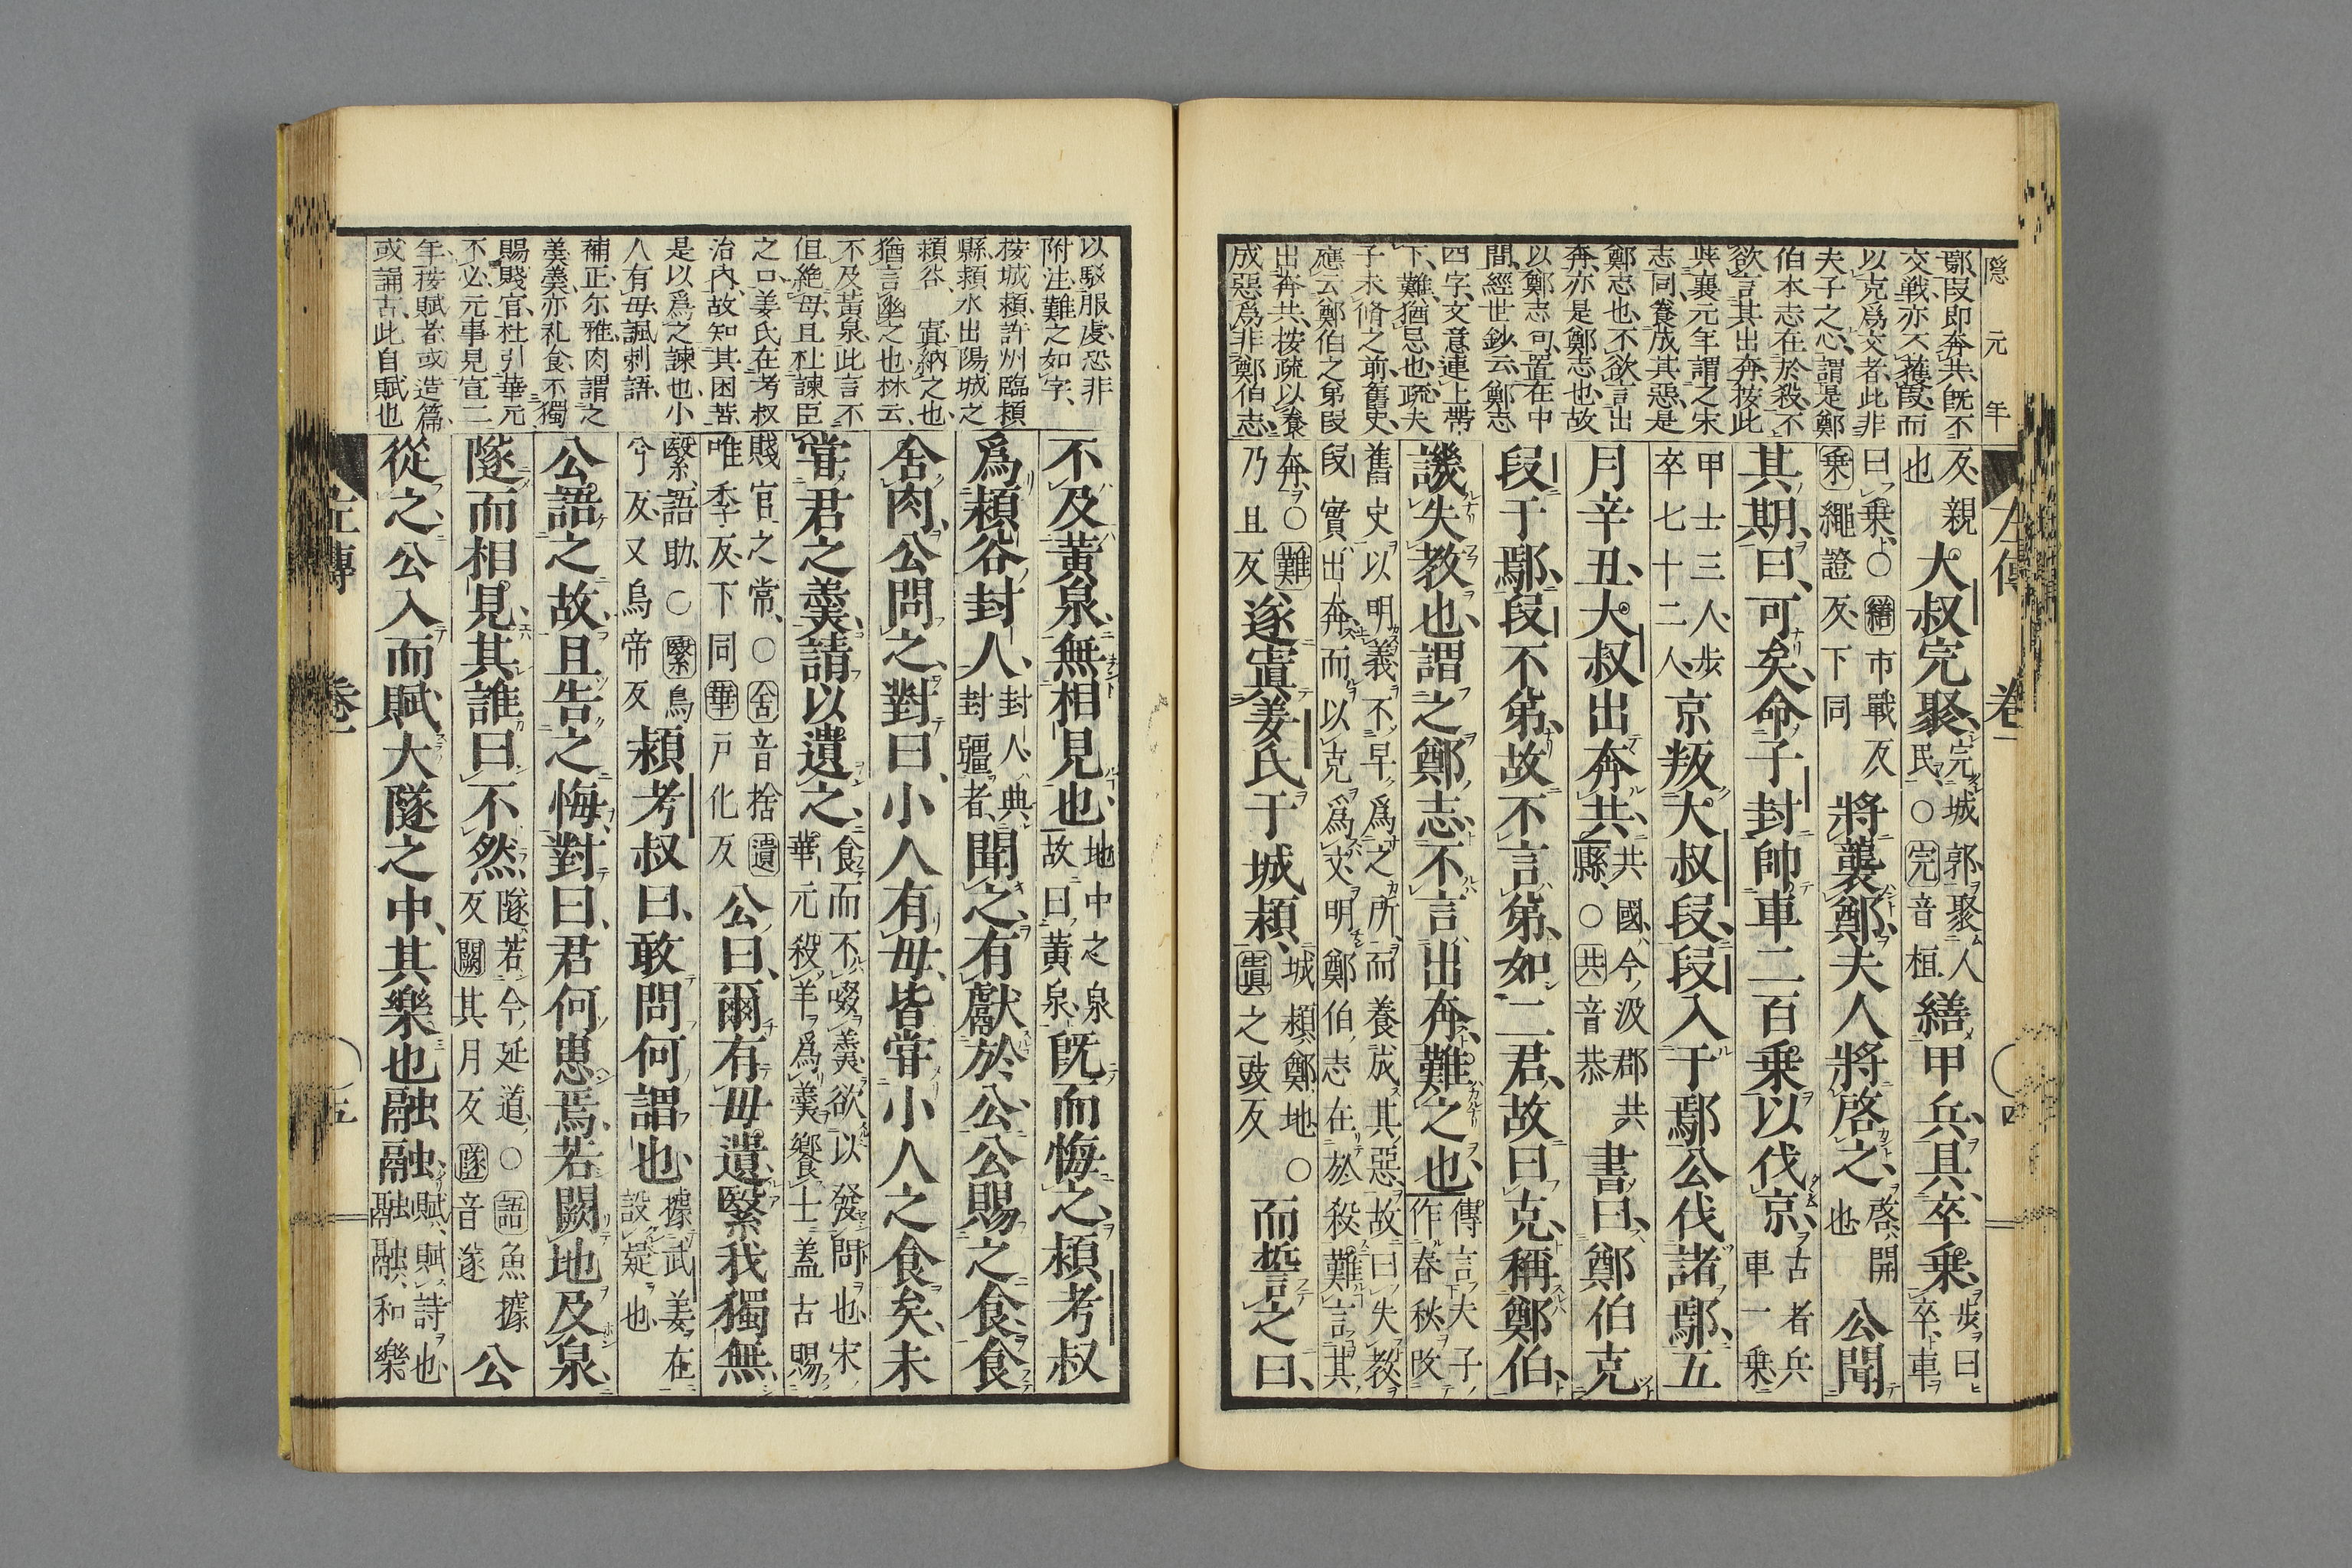 隱元年
鄢段即奔共既不
交戰亦不獲段而
以克爲文者此非
夫子之心謂是鄭
伯本志在於殺不
欲言其出奔按此
與襄元年謂之宋
志同養成其惡是
鄭志也不欲言出
奔亦是鄭志也故
以鄭志可置在中
間經世鈔云鄭志
四字文意連上帶
下難猶忌也疏夫
子未脩之前舊史
應云鄭伯之弟段
出奔共按疏以養
成惡爲非鄭伯志
反親也大叔完聚完城郭聚人民○完音桓繕甲兵具卒乘步曰卒車
曰乘○繕市戰反乘繩證反下同將襲鄭夫人將啓之啓開也公聞
其期曰可矣命子封帥車二百乘以伐京古者兵車一乘
甲士三人步卒七十二人京叛大叔段段入于鄢公伐諸鄢五
月辛丑大叔出奔共共國今汲郡共縣○共音恭書曰鄭伯克
段于鄢段不弟故不言弟如二君故曰克稱鄭伯
譏失教也謂之鄭志不言出奔難之也傳言夫子作春秋改
舊史以明義不早爲之所而養成其惡故曰失教
段實出奔而以克爲文明鄭伯志在於殺難言其
奔○難乃旦反遂寘姜氏于城潁城潁鄭地○寘之豉反而誓之曰
左傳 卷一 四
以駁服虔恐非
附注難之如字
按城潁許州臨潁
縣潁水出陽城之
潁谷 寘納之也
猶言幽之也林云
不及黃泉此言不
但絶母且杜諫臣
之口姜氏在考叔
治內故知其困苦
是以爲之諫也小
人有母諷刺語
補正尓雅肉謂之
羹羹亦礼食不獨
賜賤官杜引華元
不必元事見宣二
年按賦者或造篇
或誦古此自賦也
不及黃泉無相見也地中之泉故曰黃泉既而悔之潁考叔
爲潁谷封人封人典封疆者聞之有獻於公公賜之食食
舍肉公問之對曰小人有母皆嘗小人之食矣未
嘗君之羹請以遺之食而不啜羹欲以發問也宋華元殺羊爲羹饗士蓋古賜
賤官之常○舍音捨遺唯季反下同華戶化反公曰爾有母遺繄我獨無
繄語助○繄烏兮反又烏帝反潁考叔曰敢問何謂也據武姜在設疑也
公語之故且告之悔對曰君何患焉若闕地及泉
隧而相見其誰曰不然隧若今延道○語魚據反闕其月反隧音遂公
從之公入而賦大隧之中其樂也融融賦賦詩也融融和樂
左傳 卷一 五